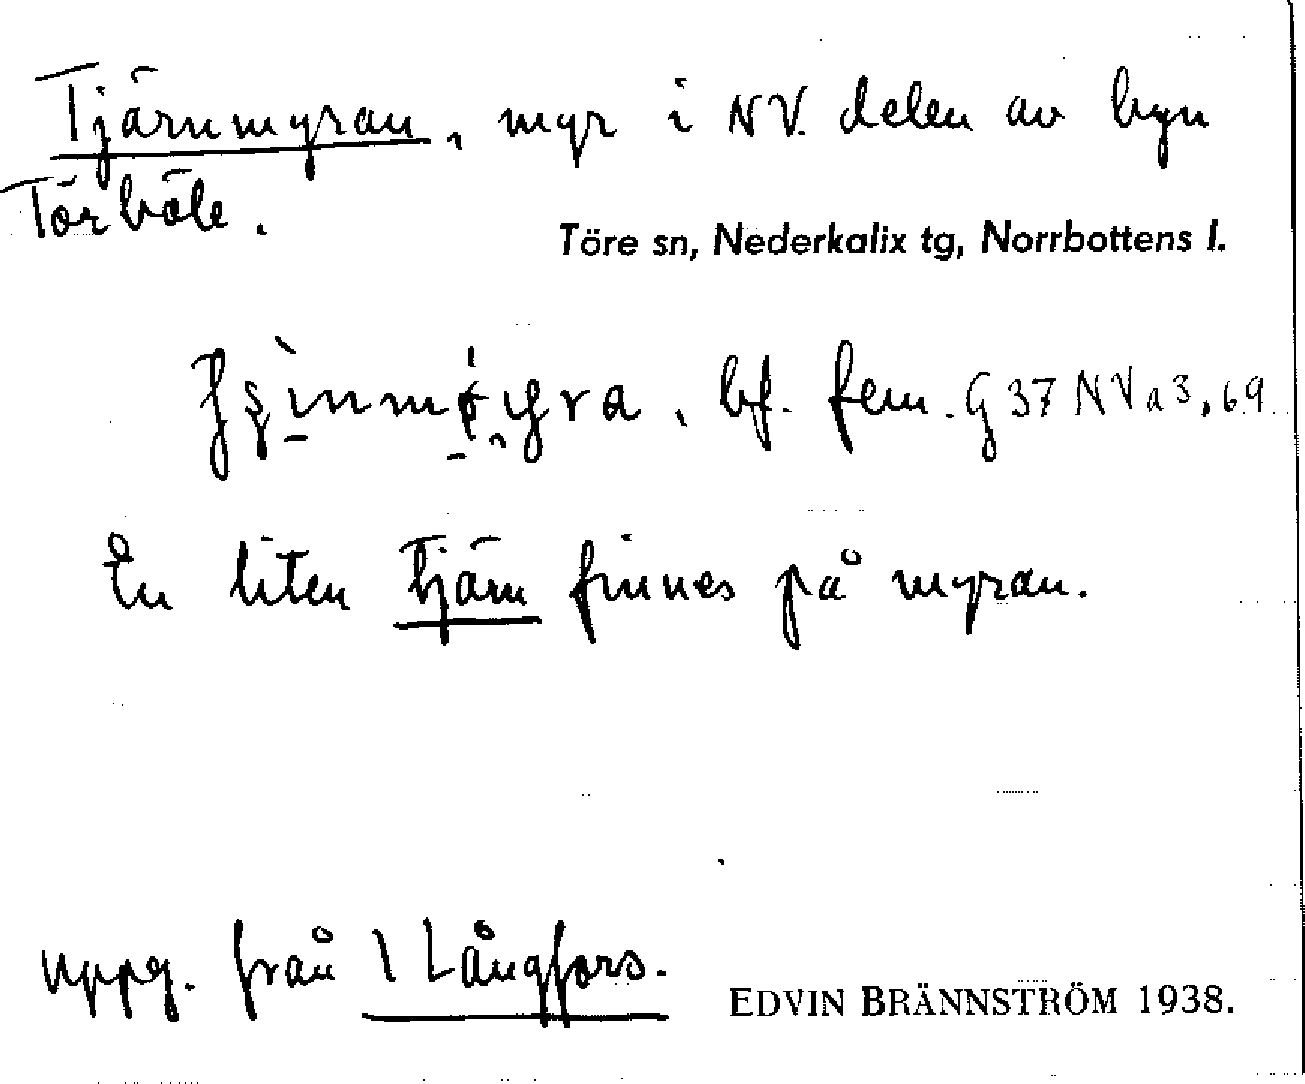 Tjärnmyran, myr i NV. delen av byn
Törböle.
Töre sn, Nederkalix tg, Norrbottens l.
bf. fem. G 37 NV a 3, 69.
En liten tjärn finnes på myran.
uppg. från \ Långfors.
EDVIN BRÄNNSTRÖM 1938.